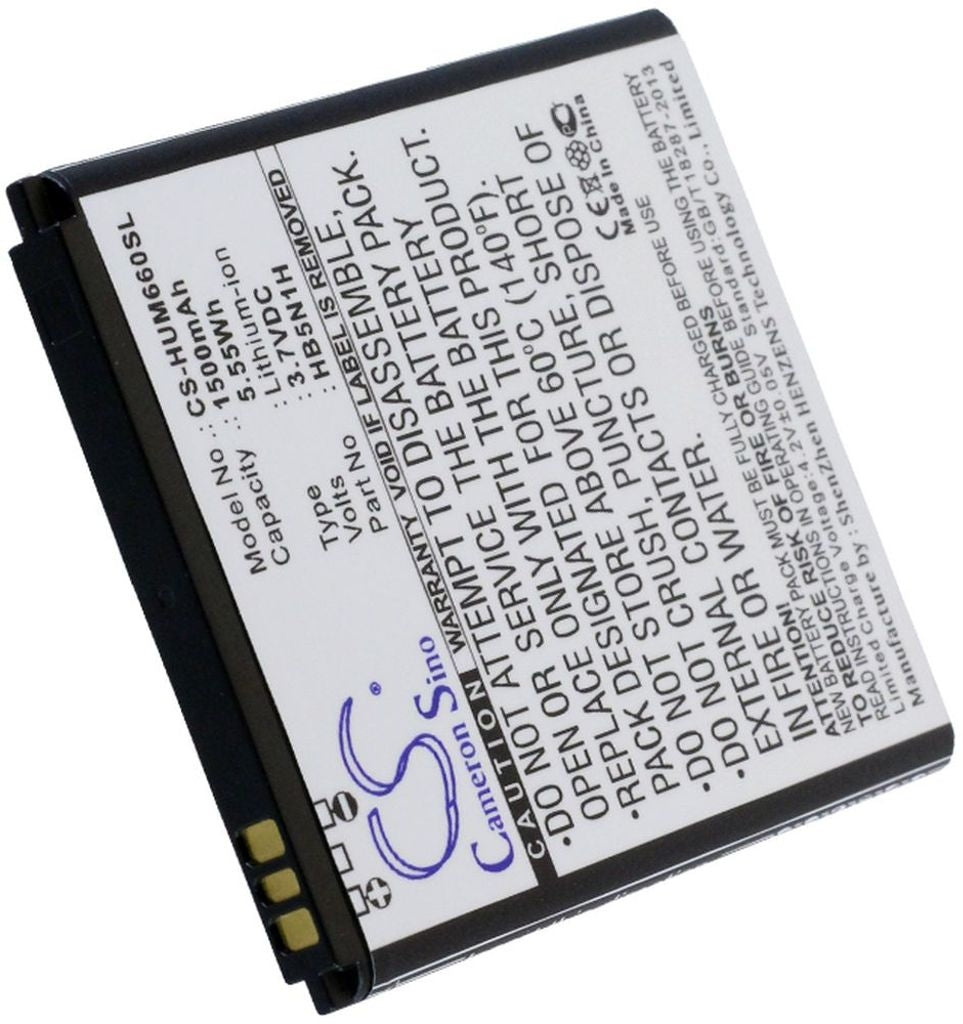 Model No : CS-HUM660SL
Capacity : 1500mAh
: 5.55Wh
Type : Lithium-ion
Volts : 3.7VDC
Part No : HB5N1H
WARRANTY VOID IF LABEL IS REMOVED.
CS®
Cameron Sino
CAUTION
•DO NOT ATTEMPT TO DISASSEMBLE,
OPEN OR SERVICE THE BATTERY PACK.
•REPLACE ONLY WITH THE BATTERY
PACK DESIGNATED FOR THIS PRODUCT.
•DO NOT STORE ABOVE 60ºC (140ºF).
•DO NOT CRUSH, PUNCTURE, SHORT
EXTERNAL CONTACTS OR DISPOSE OF
IN FIRE OR WATER.
CE
Made in China
ATTENTION
NEW BATTERY PACK MUST BE FULLY CHARGED BEFORE USE
TO REDUCE RISK OF FIRE OR BURNS
READ INSTRUCTIONS IN OPERATING GUIDE BEFORE USING THE BATTERY
Limited Charge Voltage:4.2V±0.05V Standard:GB/T18287-2013
Manufacture by: ShenZhen HENZENS Technology Co., Limited